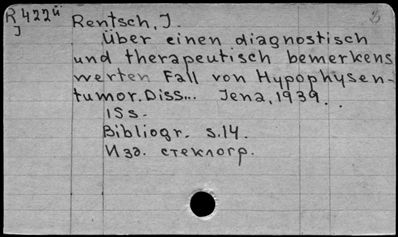 R422ü
J
Rentsch, J.
Über einen diagnostisch
und therapeutisch bemerkens
werten Fall von Hypophysen-
tumor. Diss... Jena, 1939.
15s.
Bibliogr. s.14.
Изд. стеклогр.